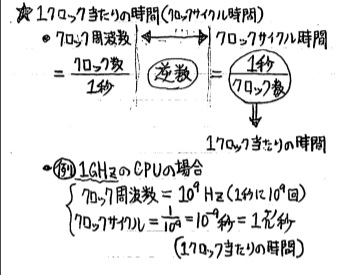 ☆1クロック当たりの時間(クロックサイクル時間)
・クロック周波数 ⟷ クロックサイクル時間
= クロック数/1秒 逆数 = 1秒/クロック数
⇓
1クロック当たりの時間
・例 1GHzのCPUの場合
クロック周波数 = 10⁹ Hz (1秒に10⁹回)
クロックサイクル = 1/10⁹ = 10⁻⁹秒 = 1ナノ秒
(1クロック当たりの時間)